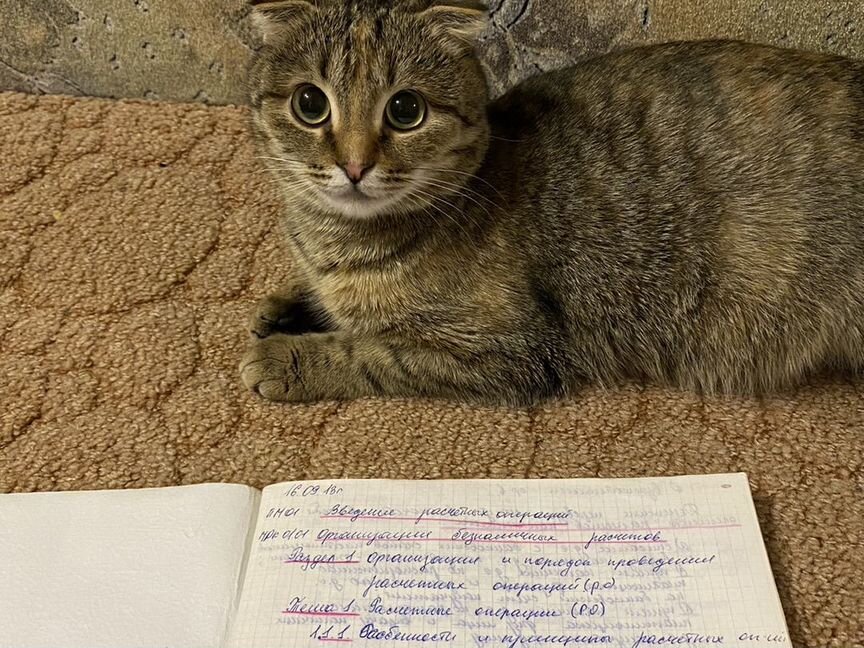 16.09.13г
ПМ01 Введение расчётных операций
МДК 01.01 Организации безналичных расчетов
Раздел 1 Организация и порядок проведения
расчетных операций (р.о)
Тема 1. Расчетные операции (Р.О)
1.1.1 Особенности и принципы расчетных оп-ий